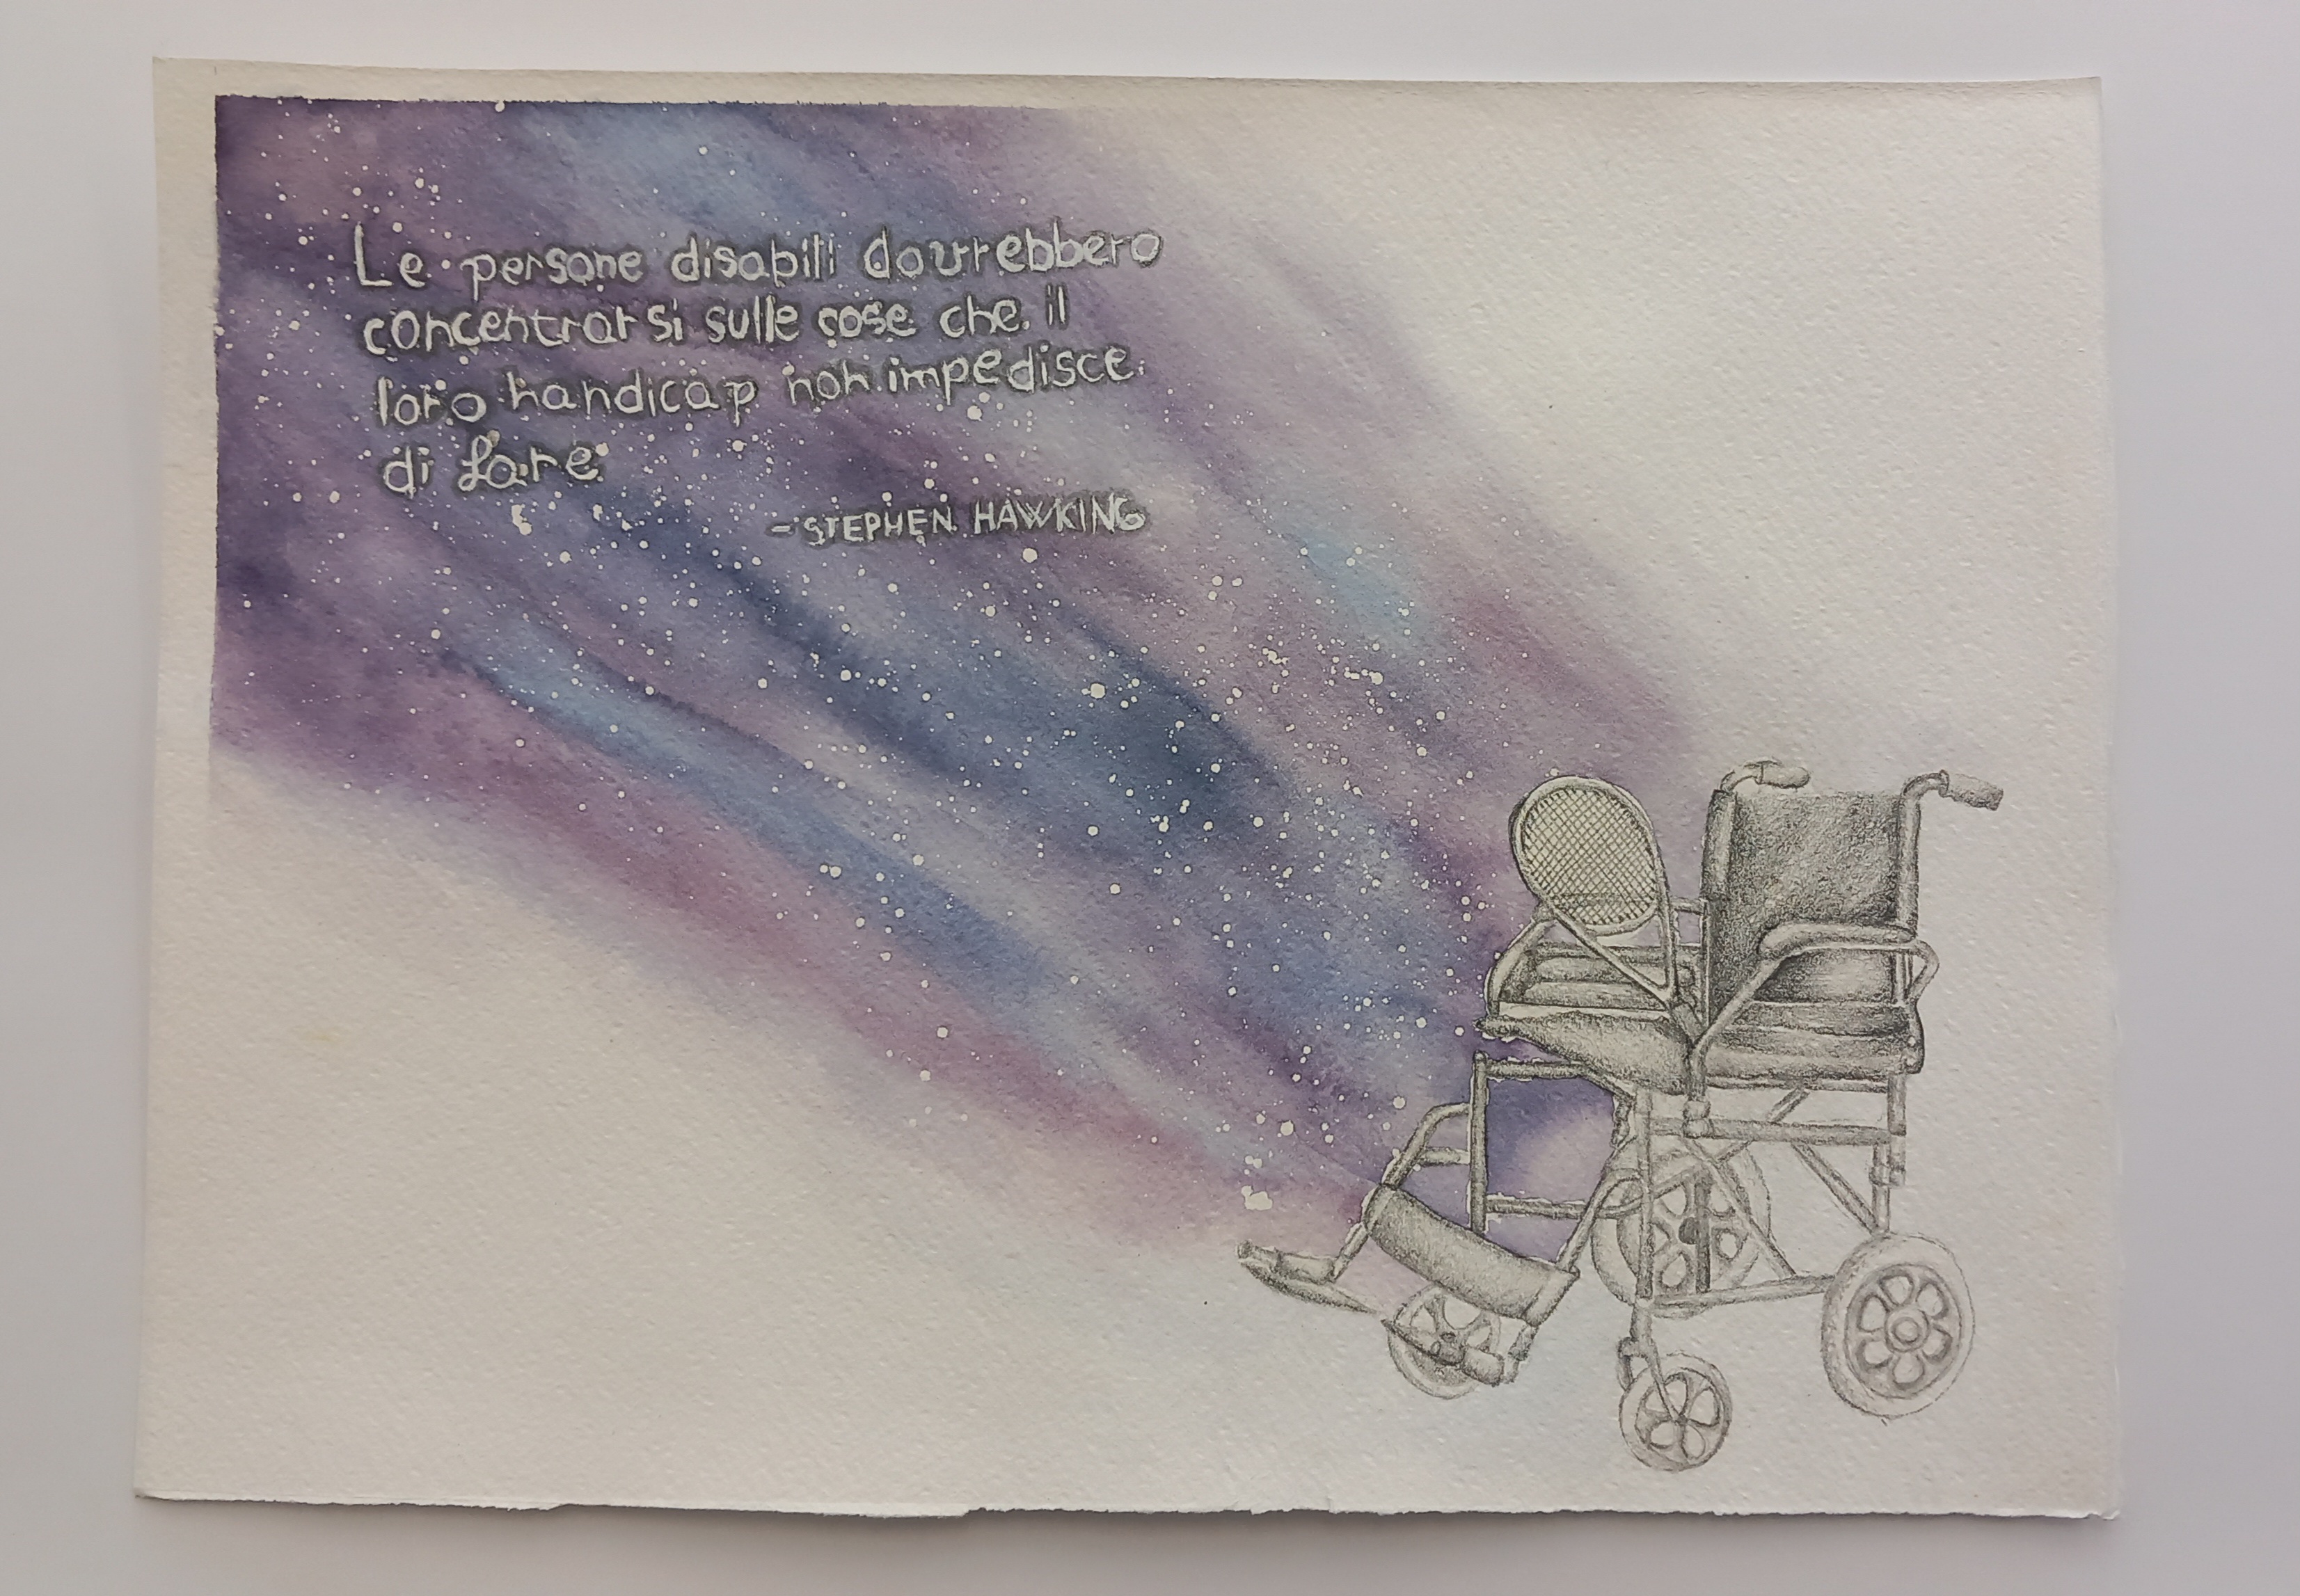 Le persone disabili dovrebbero
concentrarsi sulle cose che il
loro handicap non impedisce
di fare
- STEPHEN HAWKING